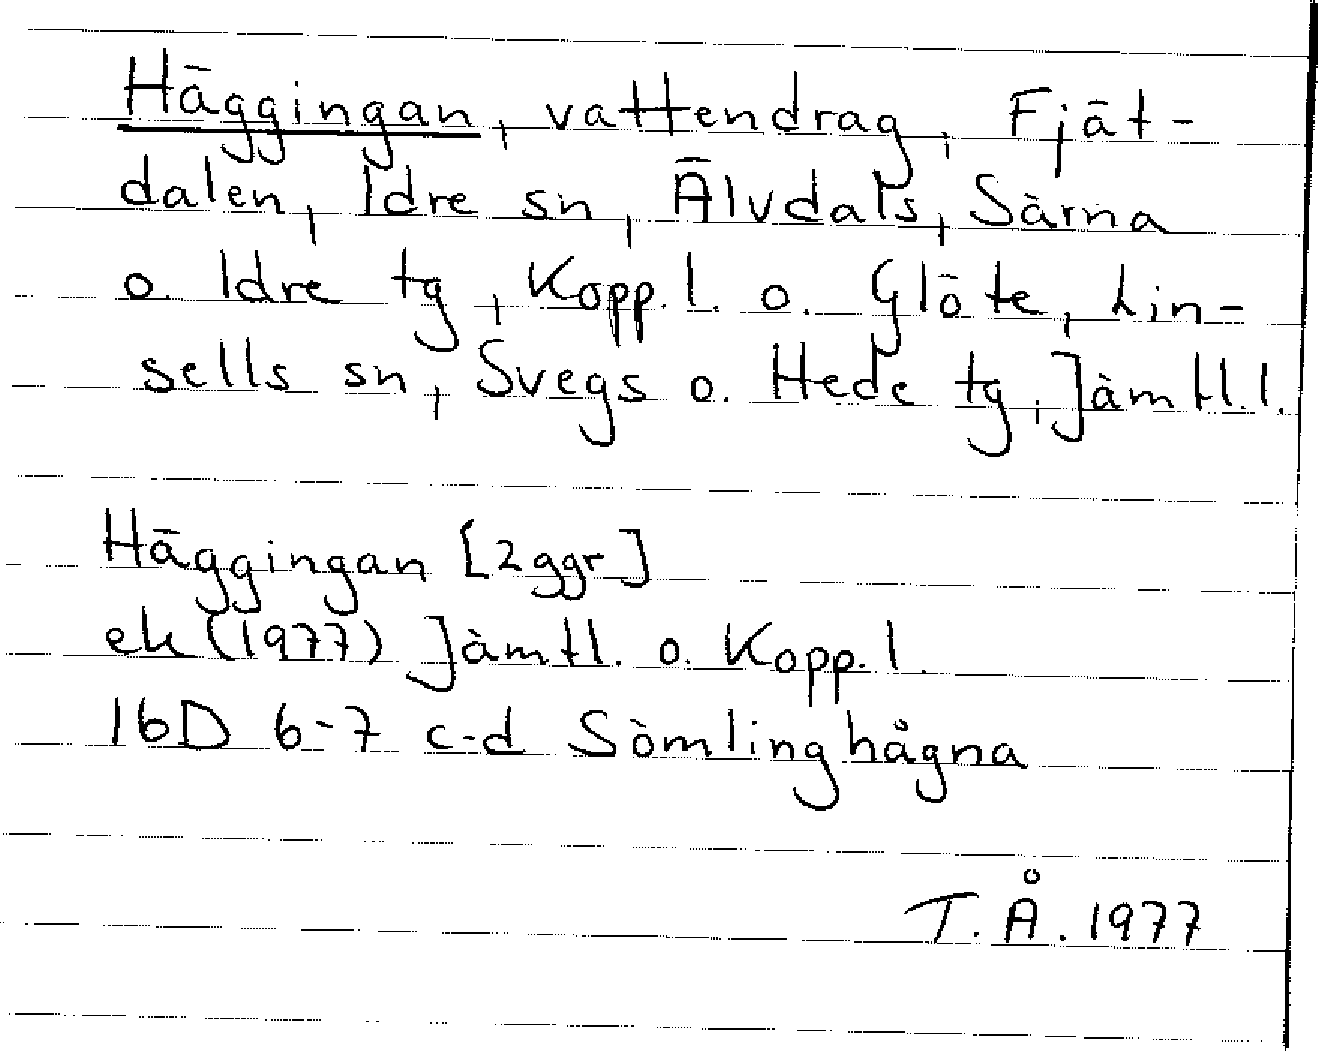 Häggingan, vattendrag, Fjät-
dalen, Idre sn, Älvdals, Särna
o. Idre tg, Kopp. l. o. Glöte, Lin-
sells sn, Svegs o. Hede tg, Jämtl. l.
Häggingan [2 ggr]
ek (1977) Jämtl. o. Kopp. l.
16D 6-7 c-d Sömlinghågna
T. Å. 1977